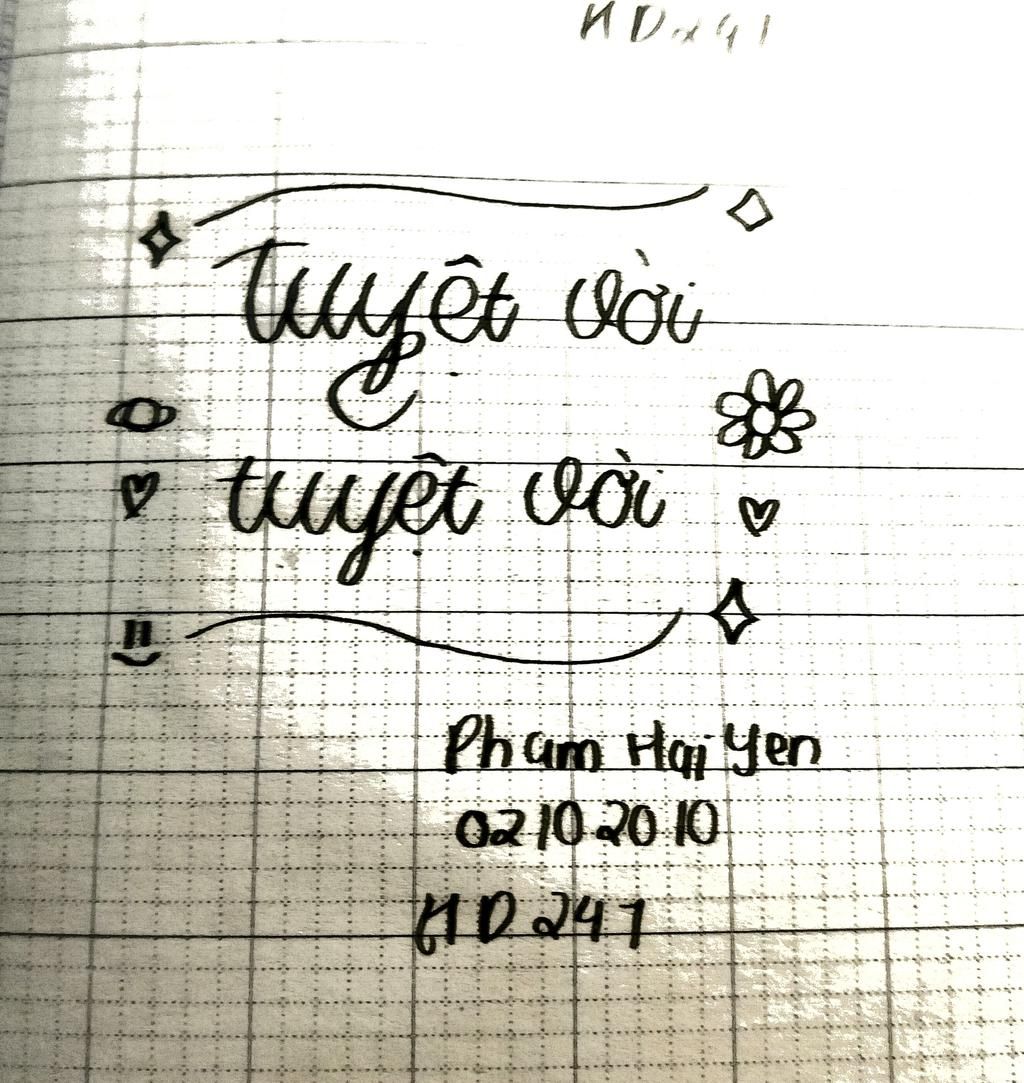 Tuyệt vời
tuyệt vời
Pham Hai Yen
02102010
HD 241